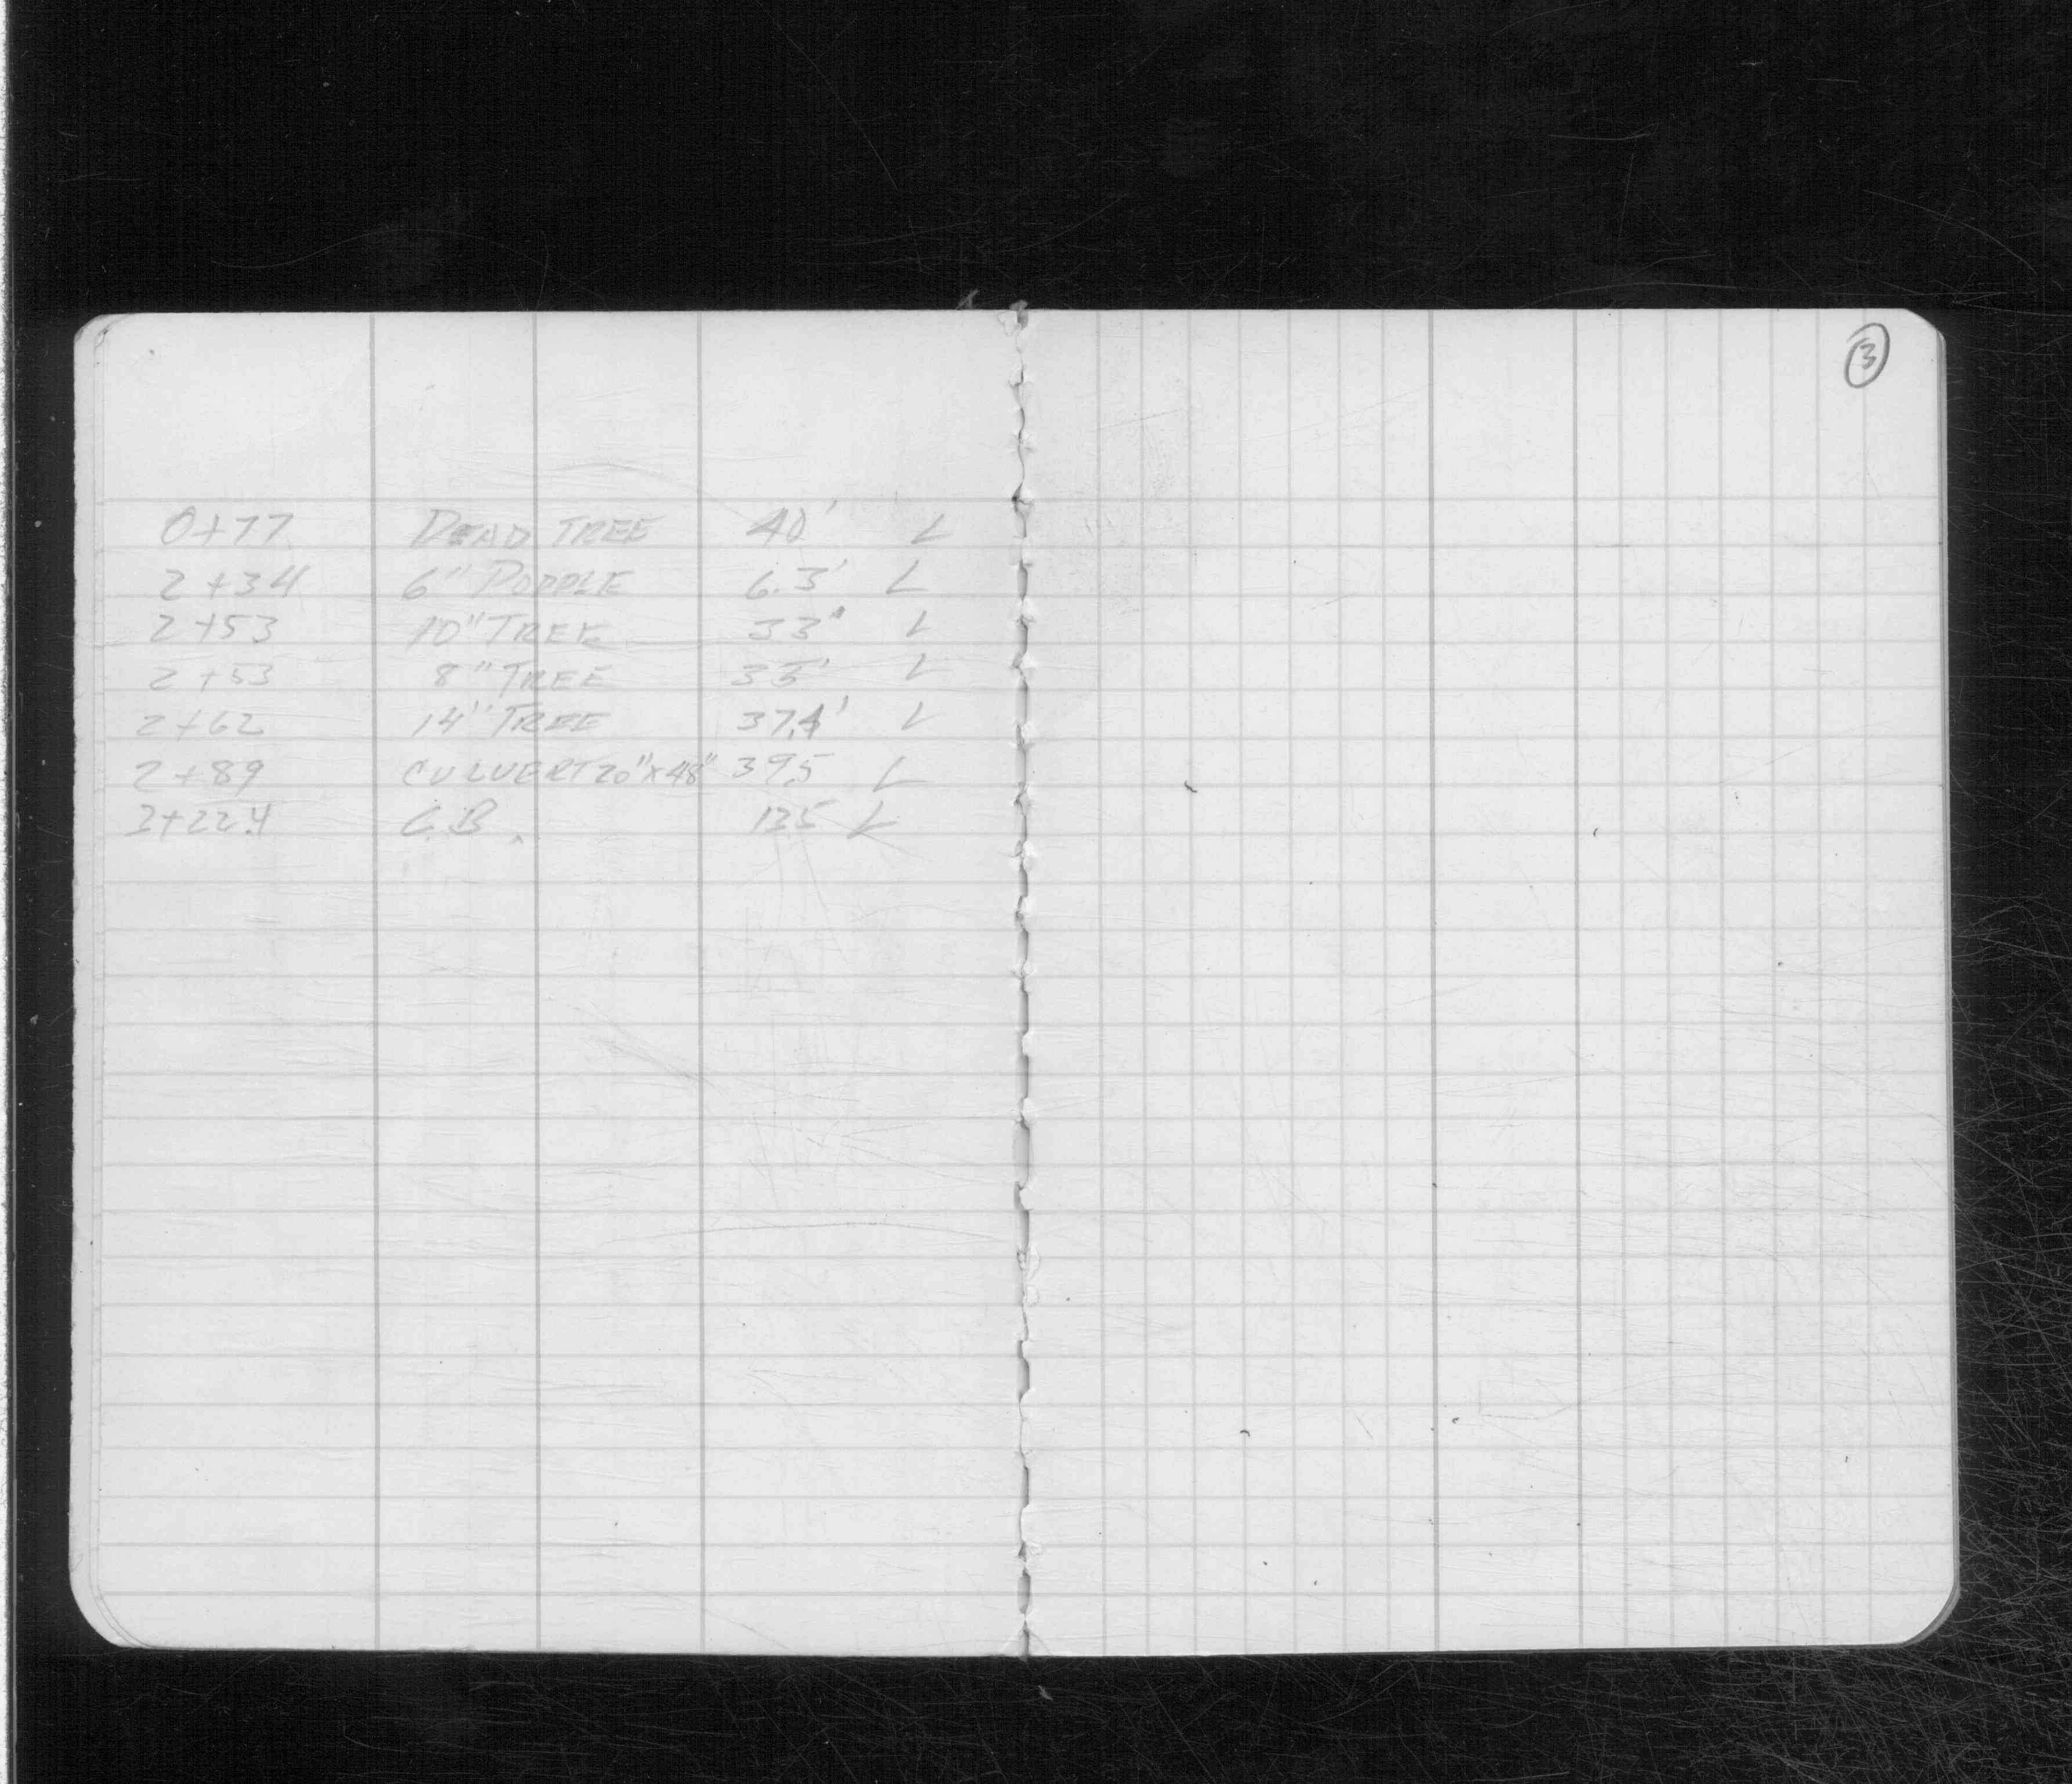 3
0+77 DEAD TREE 40' L
2+34 6" POPPLE 6.3' L
2+53 10" TREE 33' L
2+53 8" TREE 35' L
2+62 14" TREE 37.4' L
2+89 CULVERT 20"x48" 39.5 L
3+22.4 C.B. L